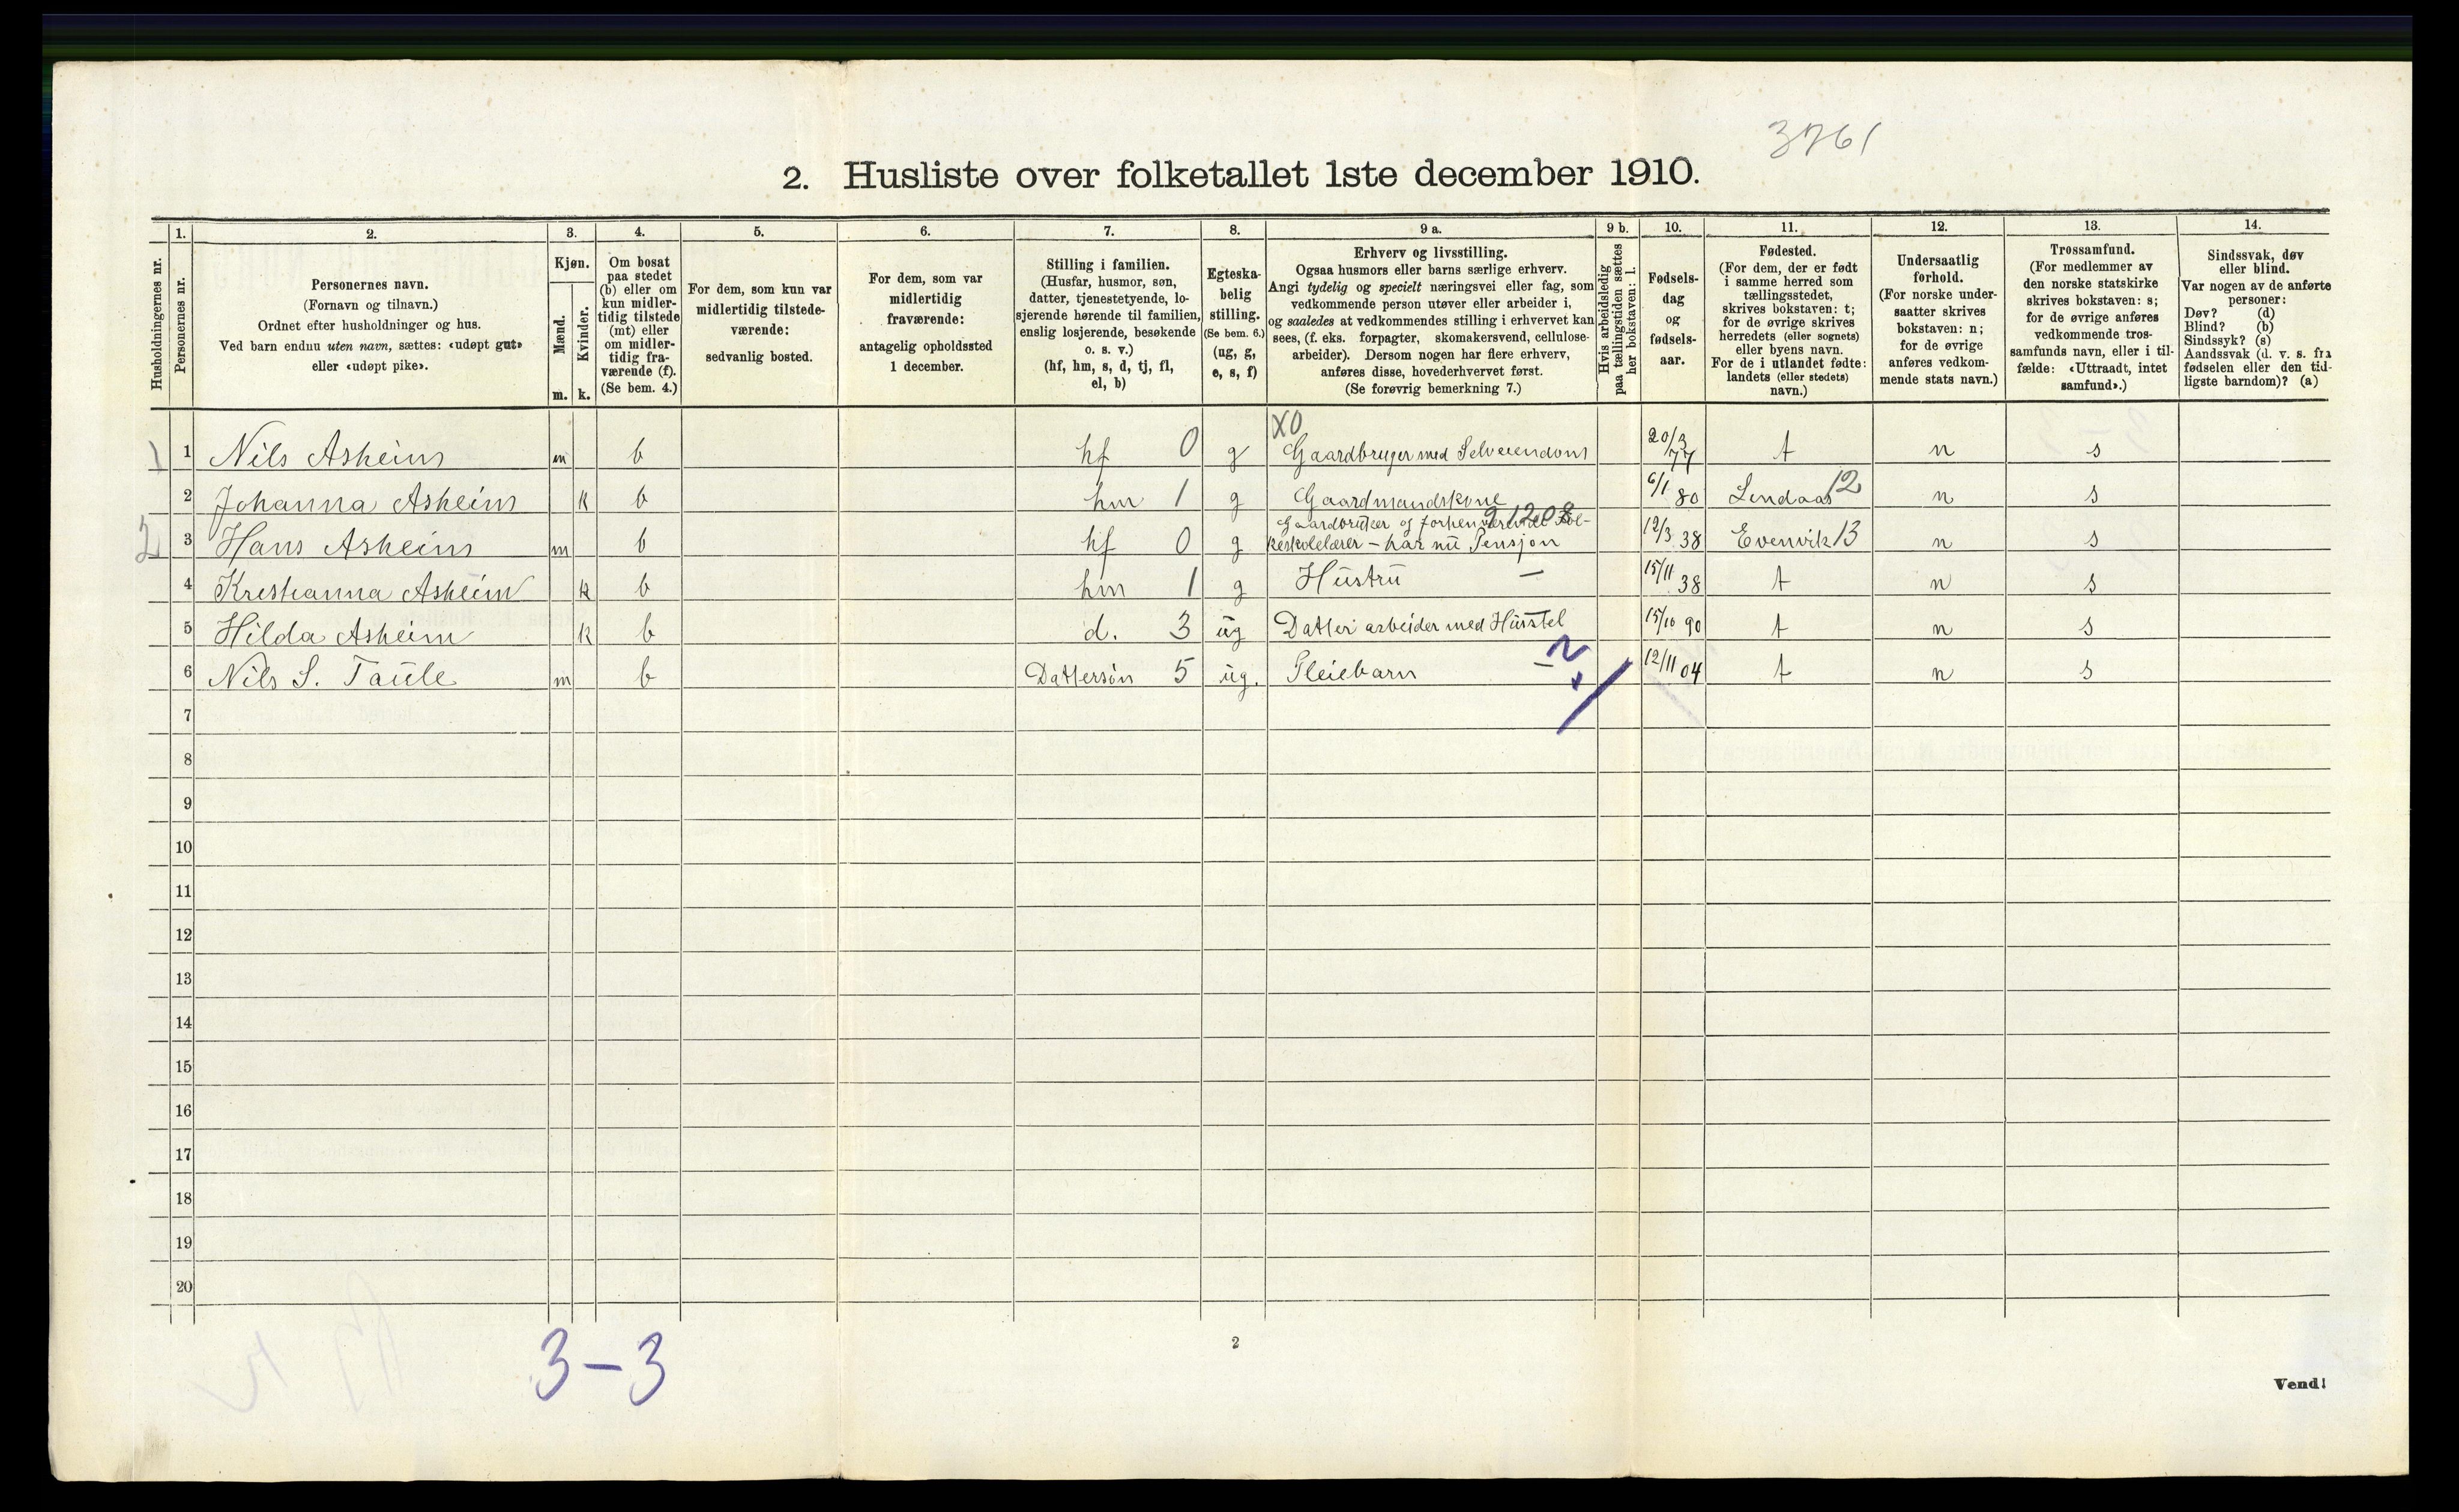 3761
2. Husliste over folketallet 1ste december 1910.
Husholdningernes nr.
1.
Personernes nr.
2.
Personernes navn.
(Fornavn og tilnavn.)
Ordnet efter husholdninger og hus.
Ved barn endnu uten navn, sættes: «udøpt gut»
eller «udøpt pike».
3.
Kjøn.
Mænd.
Kvinder.
m. k.
4.
Om bosat
paa stedet
(b) eller om
kun midler-
tidig tilstede
(mt) eller
om midler-
tidig fra-
værende (f).
(Se bem. 4.)
5.
For dem, som kun var
midlertidig tilstede-
værende:
sedvanlig bosted.
6.
For dem, som var
midlertidig
fraværende:
antagelig opholdssted
1 december.
7.
Stilling i familien.
(Husfar, husmor, søn,
datter, tjenestetyende, lo-
sjerende hørende til familien,
enslig losjerende, besøkende
o. s. v.)
(hf, hm, s, d, tj, fl,
el, b)
8.
Egteska-
belig
stilling.
(Se bem. 6.)
(ug, g,
e, s, f)
9 a.
Erhverv og livsstilling.
Ogsaa husmors eller barns særlige erhverv.
Angi tydelig og specielt næringsvei eller fag, som
vedkommende person utøver eller arbeider i,
og saaledes at vedkommendes stilling i erhvervet kan
sees, (f. eks. forpagter, skomakersvend, cellulose-
arbeider). Dersom nogen har flere erhverv,
anføres disse, hovederhvervet først.
(Se forøvrig bemerkning 7.)
9 b.
Hvis arbeidsledig
paa tællingstiden sættes
her bokstaven: l.
10.
Fødsels-
dag
og
fødsels-
aar.
11.
Fødested.
(For dem, der er født
i samme herred som
tællingsstedet,
skrives bokstaven: t;
for de øvrige skrives
herredets (eller sognets)
eller byens navn.
For de i utlandet fødte:
landets (eller stedets)
navn.)
12.
Undersaatlig
forhold.
(For norske under-
saatter skrives
bokstaven: n;
for de øvrige
anføres vedkom-
mende stats navn.)
13.
Trossamfund.
(For medlemmer av
den norske statskirke
skrives bokstaven: s;
for de øvrige anføres
vedkommende tros-
samfunds navn, eller i til-
fælde: «Uttraadt, intet
samfund».)
14.
Sindssvak, døv
eller blind.
Var nogen av de anførte
personer:
Døv? (d)
Blind? (b)
Sindssyk? (s)
Aandssvak (d. v. s. fra
fødselen eller den tid-
ligste barndom)? (a)
X0
1 1 Nils Asheim m b hf 0 g Gaardbruger med Selveiendom 20/3 77 t n s
2 Johanna Asheim k b hm 1 g Gaardmandskone 6/1 80 Lindaas 12 n s
2 3 Hans Asheim m b hf 0 g Gaardbruker og forhenværende Fol-
keskolelærer - har nu Pensjon 12/3 38 Evenvik 13 n s
4 Kristianna Asheim k b hm 1 g Hustru — 15/11 38 t n s
5 Hilda Asheim k b d. 3 ug Datter arbeider med Husstel 15/10 90 t n s
6 Nils S. Taule m b Dattersøn 5 ug. Pleiebarn 12/11 04 t n s
7
8
9
10
11
12
13
14
15
16
17
18
19
20
3-3
2
Vend!